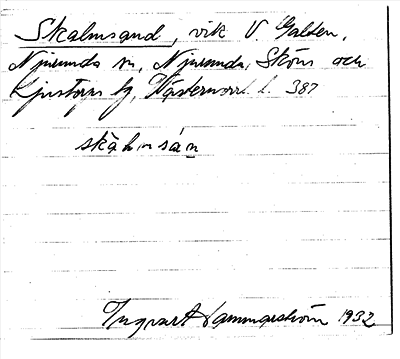 Skalmsand, vik V. Galden,
Njurunda sn, Njurunda, Sköns och
Ljustorps tg, Västernorrl. l. 387
skàlmsán
Ingvart Hammarström 1932